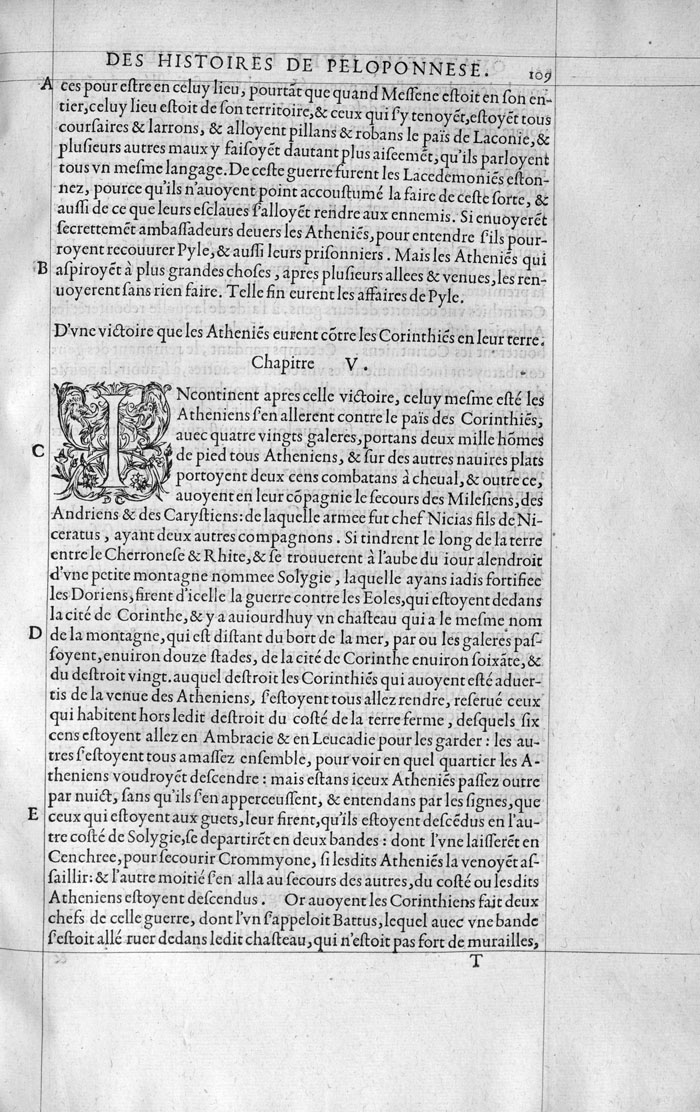 DES HISTOIRES DE PELOPONNESE. 109
A ces pour eſtre en celuy lieu, pourtāt que quand Meſſene eſtoit en ſon en-
tier, celuy lieu eſtoit de ſon territoire, & ceux qui ſ'y tenoyēt, eſtoyēt tous
courſaires & larrons, & alloyent pillans & robans le païs de Laconie, &
pluſieurs autres maux y faiſoyēt dautant plus aiſeemēt, qu'ils parloyent
tous vn meſme langage. De ceſte guerre furent les Lacedemoniēs eſton-
nez, pource qu'ils n'auoyent point accouſtumé la faire de ceſte ſorte, &
auſſi de ce que leurs eſclaues ſ'alloyēt rendre aux ennemis. Si enuoyerēt
ſecrettemēt ambaſſadeurs deuers les Atheniēs, pour entendre ſ'ils pour-
royent recouurer Pyle, & auſſi leurs priſonniers. Mais les Atheniēs qui
B aſpiroyēt à plus grandes choſes, apres pluſieurs allees & venues, les ren-
uoyerent ſans rien faire. Telle fin eurent les affaires de Pyle.
D'vne victoire que les Atheniēs eurent cōtre les Corinthiēs en leur terre.
Chapitre V.
INcontinent apres celle victoire, celuy meſme eſté les
Atheniens ſ'en allerent contre le païs des Corinthiēs,
auec quatre vingts galeres, portans deux mille hōmes
C de pied tous Atheniens, & ſur des autres nauires plats
portoyent deux cens combatans à cheual, & outre ce,
auoyent en leur cōpagnie le ſecours des Mileſiens, des
Andriens & des Caryſtiens: de laquelle armee fut chef Nicias fils de Ni-
ceratus, ayant deux autres compagnons. Si tindrent le long de la terre
entre le Cherroneſe & Rhite, & ſe trouuerent à l'aube du iour alendroit
d'vne petite montagne nommee Solygie, laquelle ayans iadis fortifiee
les Doriens, firent d'icelle la guerre contre les Eoles, qui eſtoyent dedans
la cité de Corinthe, & y a auiourdhuy vn chaſteau qui a le meſme nom
D de la montagne, qui eſt diſtant du bort de la mer, par ou les galeres paſ-
ſoyent, enuiron douze ſtades, de la cité de Corinthe enuiron ſoixāte, &
du deſtroit vingt. auquel deſtroit les Corinthiēs qui auoyent eſté aduer-
tis de la venue des Atheniens, ſ'eſtoyent tous allez rendre, reſerué ceux
qui habitent hors ledit deſtroit du coſté de la terre ferme, deſquels ſix
cens eſtoyent allez en Ambracie & en Leucadie pour les garder: les au-
tres ſ'eſtoyent tous amaſſez enſemble, pour voir en quel quartier les A-
theniens voudroyēt deſcendre: mais eſtans iceux Atheniēs paſſez outre
par nuict, ſans qu'ils ſ'en apperceuſſent, & entendans par les ſignes, que
E ceux qui eſtoyent aux guets, leur firent, qu'ils eſtoyent deſcēdus en l'au-
tre coſté de Solygie, ſe departirēt en deux bandes: dont l'vne laiſſerēt en
Cenchree, pour ſecourir Crommyone, ſi leſdits Atheniēs la venoyēt aſ-
ſaillir: & l'autre moitié ſ'en alla au ſecours des autres, du coſté ou leſdits
Atheniens eſtoyent deſcendus. Or auoyent les Corinthiens fait deux
chefs de celle guerre, dont l'vn ſ'appeloit Battus, lequel auec vne bande
ſ'eſtoit allé ruer dedans ledit chaſteau, qui n'eſtoit pas fort de murailles,
T